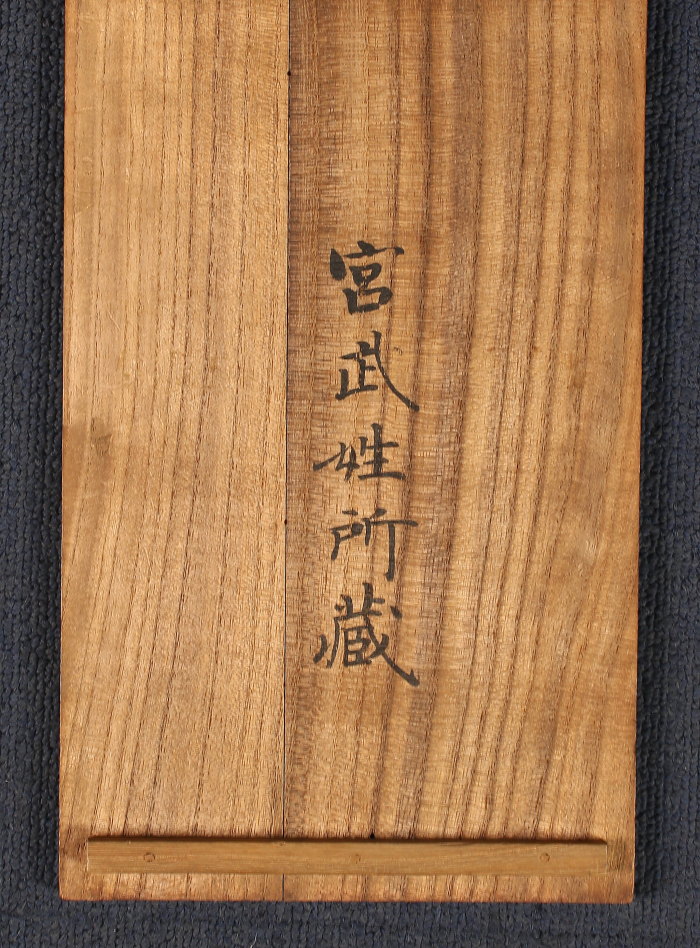 宮武姓所蔵